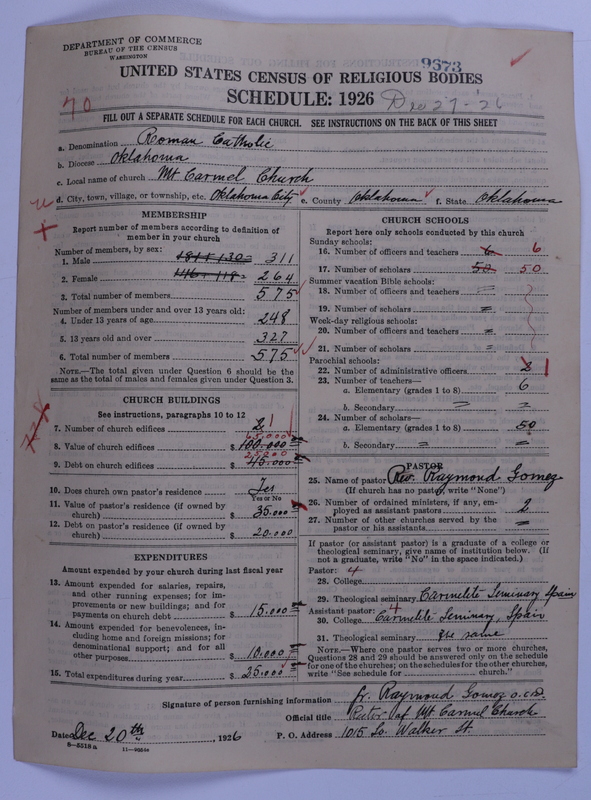 DEPARTMENT OF COMMERCE
BUREAU OF THE CENSUS
WASHINGTON
9673
UNITED STATES CENSUS OF RELIGIOUS BODIES
SCHEDULE: 1926 Dec 27-'26
70
FILL OUT A SEPARATE SCHEDULE FOR EACH CHURCH. SEE INSTRUCTIONS ON THE BACK OF THIS SHEET
a. Denomination Roman Catholic
b. Diocese Oklahoma
c. Local name of church Mt Carmel Church
d. City, town, village, or township, etc. Oklahoma City e. County Oklahoma f. State Oklahoma
MEMBERSHIP
Report number of members according to definition of
member in your church
Number of members, by sex:
1. Male 181+130= 311
2. Female 146+118= 264
3. Total number of members 575
Number of members under and over 13 years old:
4. Under 13 years of age 248
5. 13 years old and over 327
6. Total number of members 575
NOTE.—The total given under Question 6 should be the
same as the total of males and females given under Question 3.
CHURCH BUILDINGS
See instructions, paragraphs 10 to 12
7. Number of church edifices 2 1
65.000
8. Value of church edifices $ 100.000
25000
9. Debt on church edifices $ 45.000
10. Does church own pastor's residence Yes
Yes or No
11. Value of pastor's residence (if owned by
church) $ 35.000
12. Debt on pastor's residence (if owned by
church) $ 20.000
EXPENDITURES
Amount expended by your church during last fiscal year
13. Amount expended for salaries, repairs,
and other running expenses; for im-
provements or new buildings; and for
payments on church debt $ 15.000
14. Amount expended for benevolences, in-
cluding home and foreign missions; for
denominational support; and for all
other purposes $ 10.000
15. Total expenditures during year $ 25.000
CHURCH SCHOOLS
Report here only schools conducted by this church
Sunday schools:
16. Number of officers and teachers 6 6
17. Number of scholars 50 50
Summer vacation Bible schools:
18. Number of officers and teachers =
19. Number of scholars =
Week-day religious schools:
20. Number of officers and teachers =
21. Number of scholars =
Parochial schools:
22. Number of administrative officers 2 1
23. Number of teachers—
a. Elementary (grades 1 to 8) 6
b. Secondary = =
24. Number of scholars—
a. Elementary (grades 1 to 8) 50
b. Secondary = =
PASTOR
25. Name of pastor Rev. Raymond Gomez
(If church has no pastor, write "None")
26. Number of ordained ministers, if any, em-
ployed as assistant pastors 2
27. Number of other churches served by the
pastor or his assistants =
If pastor (or assistant pastor) is a graduate of a college or
theological seminary, give name of institution below. (If
not a graduate, write "No" in the space indicated.)
Pastor: 4
28. College
29. Theological seminary Carmelite Seminary Spain
Assistant pastor: 4
30. College Carmelite Seminary, Spain
31. Theological seminary the same
NOTE.—Where one pastor serves two or more churches,
Questions 28 and 29 should be answered only on the schedule
for one of the churches; on the schedules for the other churches,
write "See schedule for church."
Signature of person furnishing information fr. Raymond Gomez o.c.d.
Official title Rector of Mt Carmel Church
Date Dec 20th, 1926 P. O. Address 1015 So. Walker St.
8-5518a